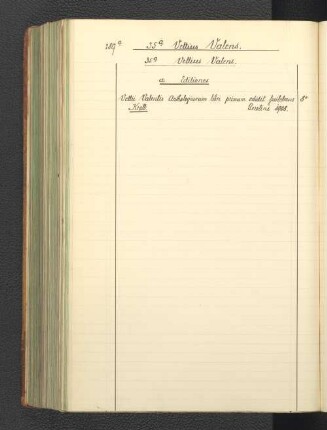 189a 35a Vettius Valens.
35a Vettius Valens.
a Editiones
Vettii Valentis Anthologiarum libri primum edidit Guilelmus 8°
Kroll. Berolini 1908.